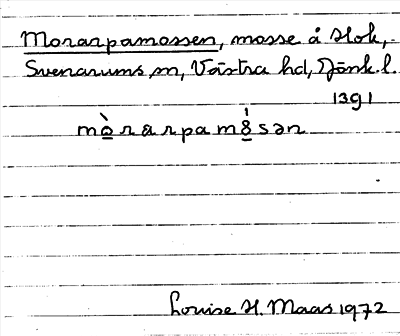 Morarpamossen, mosse å Hok,
Svenarums sn, Västra hd, Jönk. l.
1391
mòrarpamósən
Louise H. Maas 1972